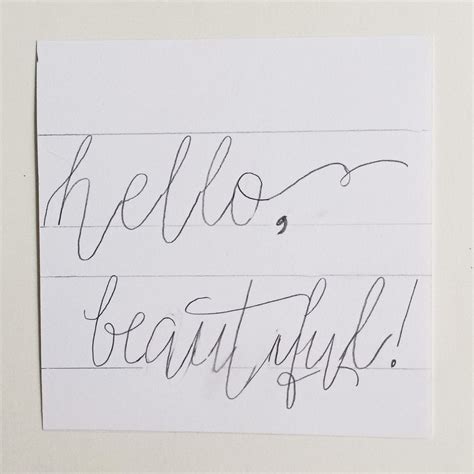 hello,
beautiful!